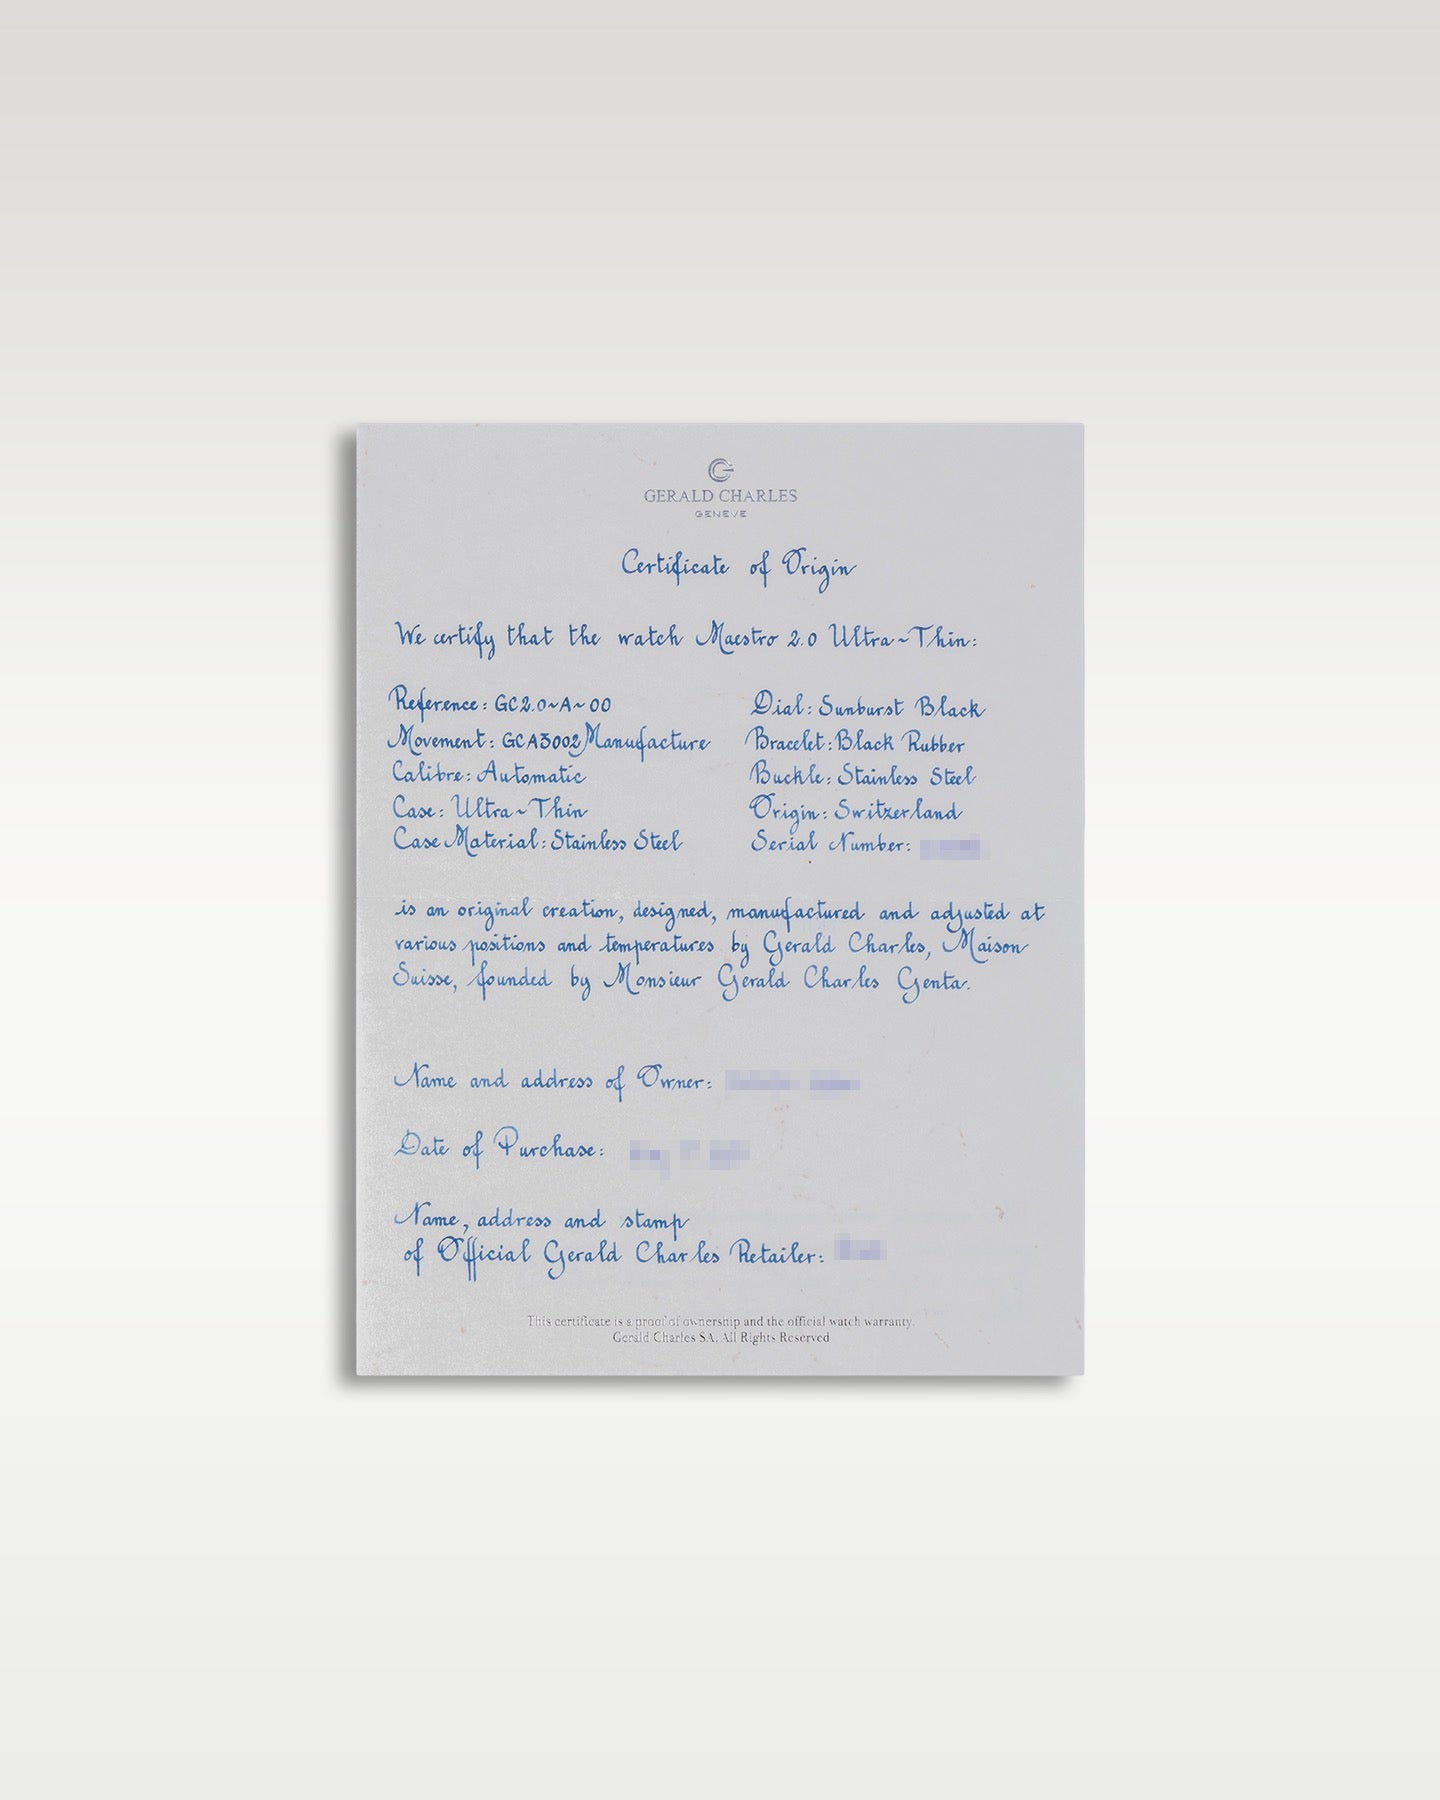 GERALD CHARLES
GENEVE
Certificate of Origin
We certify that the watch Maestro 2.0 Ultra~Thin:
Reference: GC2.0~A~00
Movement: GCA3002 Manufacture
Calibre: Automatic
Case: Ultra~Thin
Case Material: Stainless Steel
Dial: Sunburst Black
Bracelet: Black Rubber
Buckle: Stainless Steel
Origin: Switzerland
Serial Number:
is an original creation, designed, manufactured and adjusted at
various positions and temperatures by Gerald Charles, Maison
Suisse, founded by Monsieur Gerald Charles Genta.
Name and address of Owner:
Date of Purchase:
Name, address and stamp
of Official Gerald Charles Retailer:
This certificate is a proof of ownership and the official watch warranty.
Gerald Charles SA. All Rights Reserved